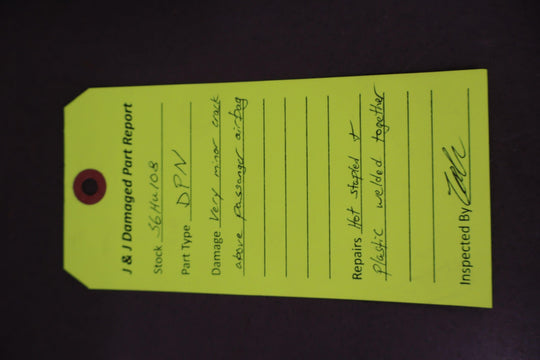 J & J Damaged Part Report
Stock S6HU108
Part Type DPN
Damage Very minor crack
above passanger airbag
Repairs Hot stapled &
plastic welded together
Inspected By